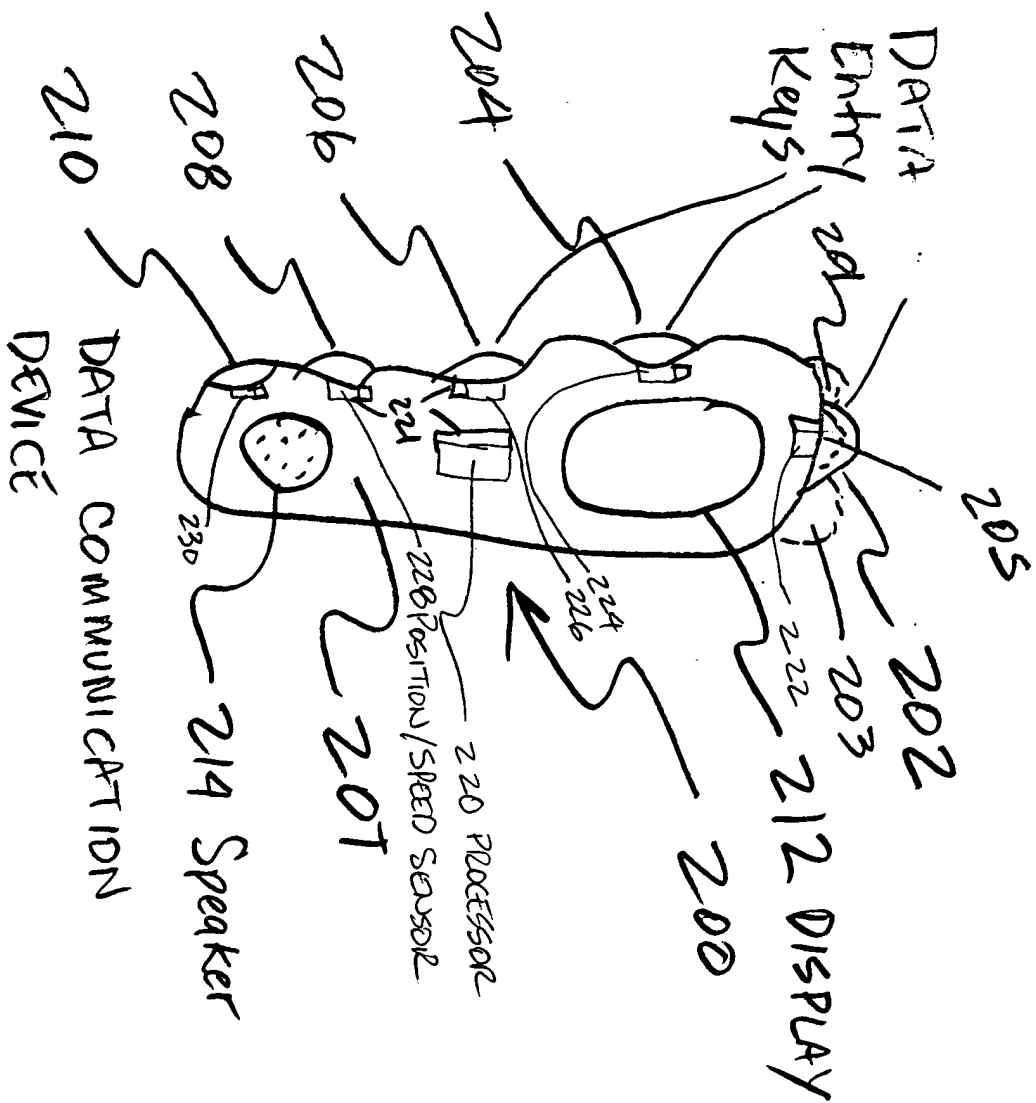 DATA
Entry
Keys
201
205
202
203
222
212 DISPLAY
200
204
224
226
206
221
220 PROCESSOR
228 POSITION/SPEED SENSOR
207
208
214 Speaker
230
210
DATA COMMUNICATION
DEVICE